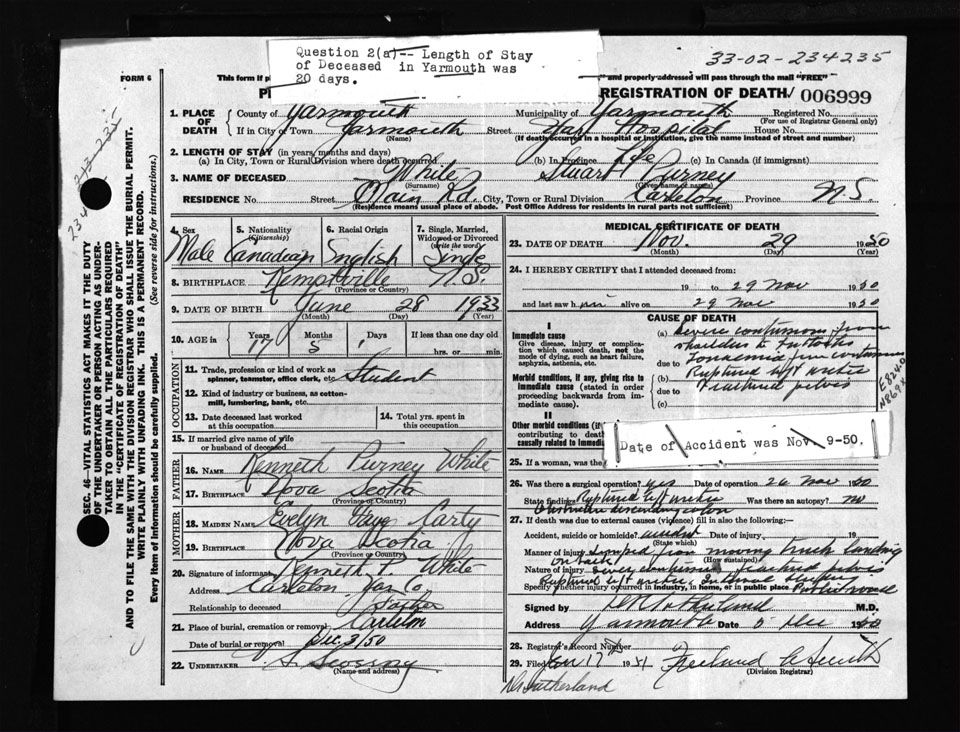 33-02-234235
Question 2(a)-- Length of Stay
of Deceased in Yarmouth was
20 days.
FORM 6
This form if and properly addressed will pass through the mail "FREE"
REGISTRATION OF DEATH
006999
1. PLACE OF DEATH
County of Yarmouth Municipality of Yarmouth Registered No.
(For use of Registrar General only)
If in City of Town Yarmouth Street Yar Hospital House No.
(Name) (If death occurred in a hospital or institution, give the name instead of street and number)
2. LENGTH OF STAY (in years, months and days)
(a) In City, Town or Rural Division where death occurred (b) In Province Life (c) In Canada (if immigrant)
3. NAME OF DECEASED White Stuart Purney
(Surname) (Given name or names)
RESIDENCE No. Street Main Rd. City, Town or Rural Division Carleton Province N S
(Residence means usual place of abode. Post Office Address for residents in rural parts not sufficient)
4. Sex Male
5. Nationality (Citizenship) Canadian
6. Racial Origin English
7. Single, Married, Widowed or Divorced (write the word) Single
8. BIRTHPLACE Kemptville N.S.
(Province or Country)
9. DATE OF BIRTH June 28 1933
(Month) (Day) (Year)
10. AGE in Years Months Days If less than one day old
17 5 1 hrs. or min.
OCCUPATION
11. Trade, profession or kind of work as Student
spinner, teamster, office clerk, etc.
12. Kind of industry or business, as cotton-
mill, lumbering, bank, etc.
13. Date deceased last worked
at this occupation
14. Total yrs. spent in
this occupation
15. If married give name of wife
or husband of deceased
FATHER
16. NAME Kenneth Purney White
17. BIRTHPLACE Nova Scotia
(Province or Country)
MOTHER
18. MAIDEN NAME Evelyn Faye Carty
19. BIRTHPLACE Nova Scotia
(Province or Country)
20. Signature of informant Kenneth P. White
Address Carleton Yar Co.
Relationship to deceased Father
21. Place of burial, cremation or removal Carleton
Date of burial or removal Dec 3/50
22. UNDERTAKER
(Name and address)
MEDICAL CERTIFICATE OF DEATH
23. DATE OF DEATH Nov. 29 1950
(Month) (Day) (Year)
24. I HEREBY CERTIFY that I attended deceased from:
19 to 29 Nov 1950
and last saw him alive on 29 Nov 1950
CAUSE OF DEATH
I
Immediate cause
Give disease, injury or complica-
tion which caused death, not the
mode of dying, such as heart failure,
asphyxia, asthenia, etc.
(a) Severe contusions from
shoulders to buttocks
due to Toxaemia from contusions
Morbid conditions, if any, giving rise to
immediate cause (stated in order
proceeding backwards from im-
mediate cause).
(b) Ruptured left ureter
due to Fractured pelvis
(c)
II
Other morbid conditions (if
contributing to death
causally related to immediate
Date of Accident was Nov. 9-50.
25. If a woman, was the
26. Was there a surgical operation? yes Date of operation 26 Nov 1950
State findings Ruptured left ureter Was there an autopsy? no
Obstruction descending colon
27. If death was due to external causes (violence) fill in also the following:—
Accident, suicide or homicide? accident Date of injury 19
(State which)
Manner of injury Jumped from moving truck landing
(How sustained)
Nature of injury Severe contusions fractured pelvis
Ruptured left ureter,
Specify whether injury occurred in industry, in home, or in public place Public road
Signed by D R Sutherland M.D.
Address Yarmouth Date 5 Dec 1950
28. Registrar's Record Number
29. Filed Jan 17th 1951
(Division Registrar)
DR Sutherland
SEC. 46—VITAL STATISTICS ACT MAKES IT THE DUTY
OF THE UNDERTAKER OR PERSON ACTING AS UNDER-
TAKER TO OBTAIN ALL THE PARTICULARS REQUIRED
IN THE "CERTIFICATE OF REGISTRATION OF DEATH"
AND TO FILE THE SAME WITH THE DIVISION REGISTRAR WHO SHALL ISSUE THE BURIAL PERMIT.
WRITE PLAINLY WITH UNFADING INK. THIS IS A PERMANENT RECORD.
Every item of Information should be carefully supplied. (See reverse side for instructions.)